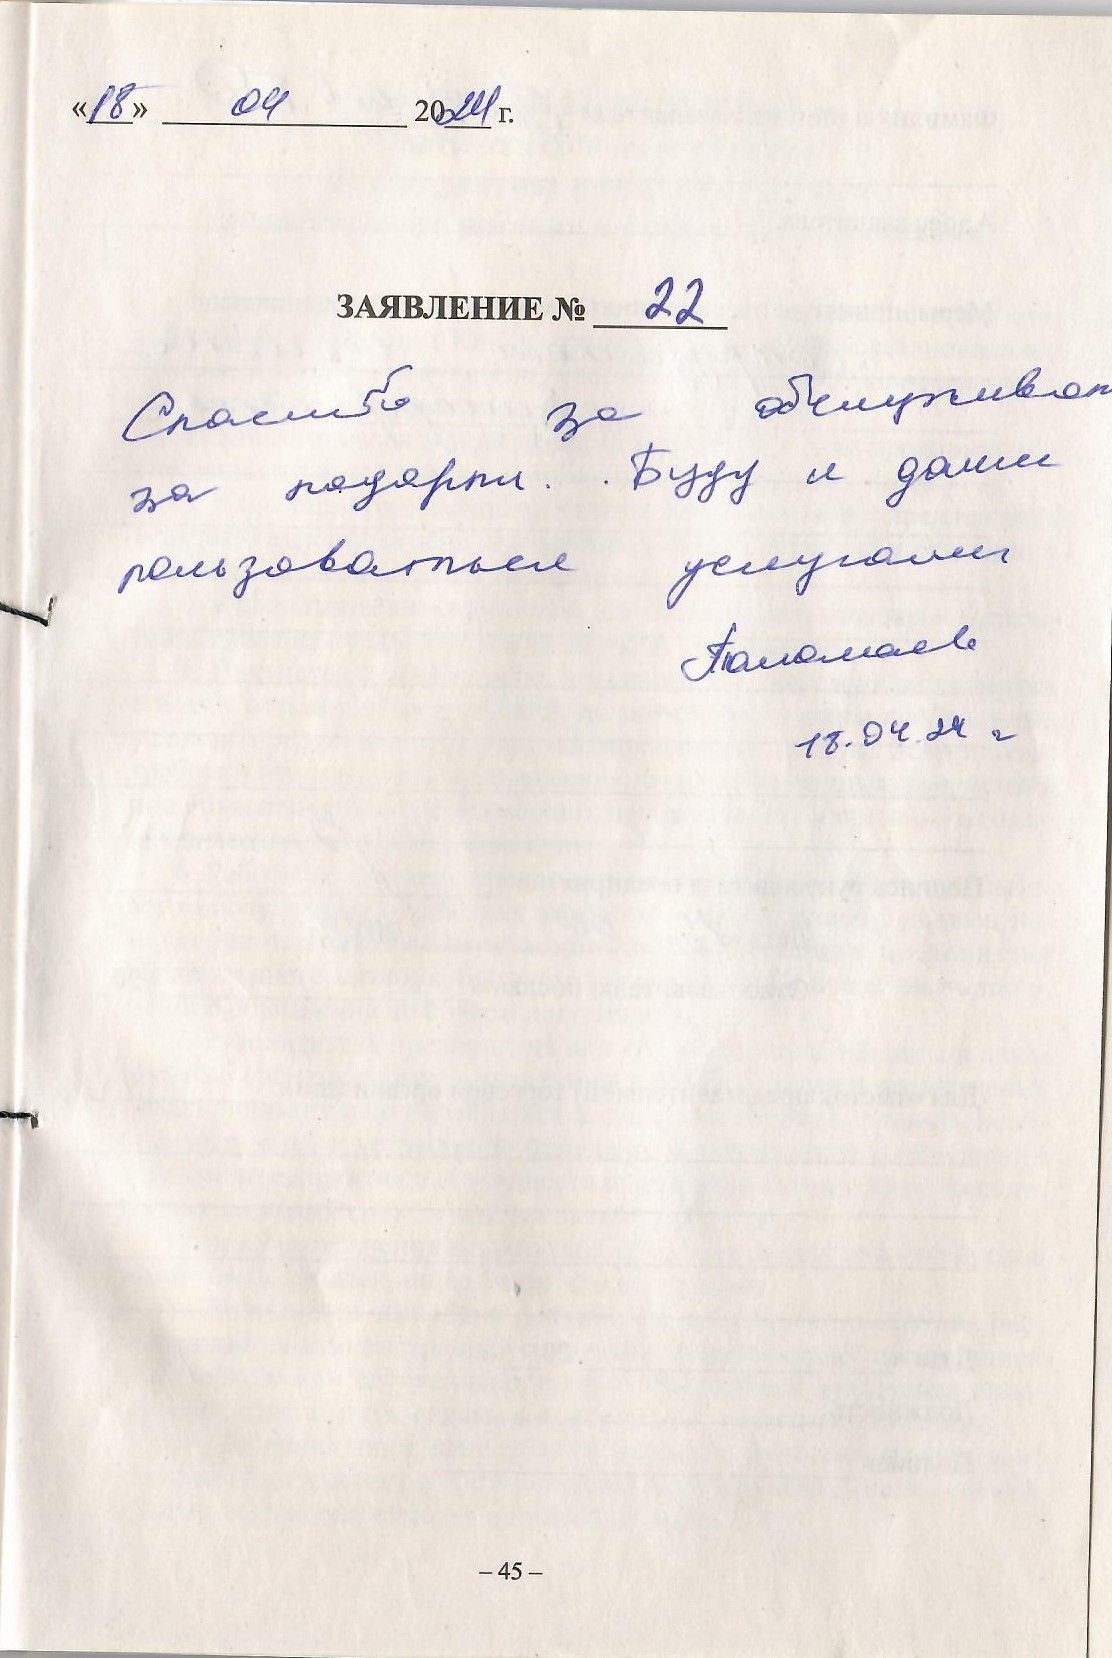 «18» 04 2024 г.
ЗАЯВЛЕНИЕ № 22
Спасибо за обслуживан
за подарки. Буду и далии
пользоваться услугами
18.04.24 г
– 45 –